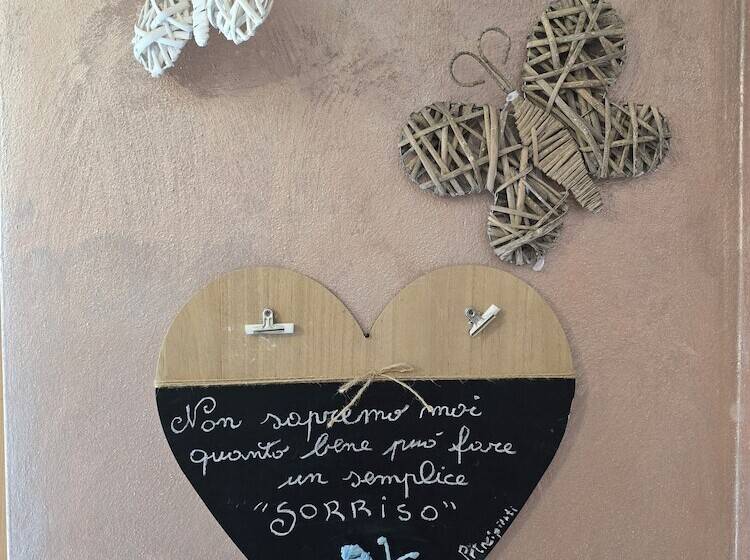 Non sapremo mai
quanto bene può fare
un semplice
"SORRISO"
Principiati